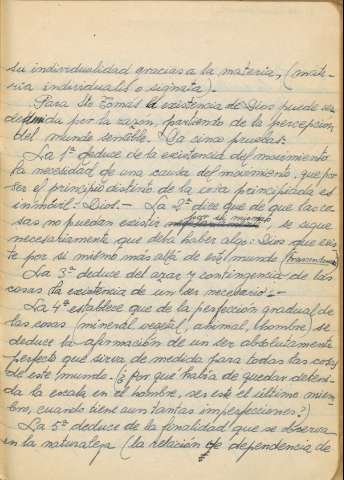 su individualidad gracias a la materia, (mate-
ria individualis o signata).-
Para Sto Tomás la existencia de Dios puede ser
deducida por la razón, partiendo de la percepción
del mundo sensible. Da cinco pruebas:
La 1ª deduce de la existencia del movimiento
la necesidad de una causa del movimiento, que por
ser el principio distinto de la cosa principiada es
inmóvil: Dios.- La 2ª dice que de que las co-
sas no puedan existir por sí mismas se sigue
necesariamente que debe haber algo: Dios que exis-
te por sí mismo más allá de este mundo (transcendente)
La 3ª deduce del azar y contingencia de las
cosas la existencia de un ser necesario.-
La 4ª establece que de la perfección gradual de
las cosas (mineral, vegetal, animal, hombre) se
deduce la afirmación de un ser absolutamente
perfecto que sirva de medida para todas las cosas
de este mundo. (¿por qué había de quedar deteni-
da la escala en el hombre, ser este el último miem-
bro, cuando tiene aun tantas imperfecciones?)
La 5ª deduce de la finalidad que se observa
en la naturaleza (la relación de dependencia de